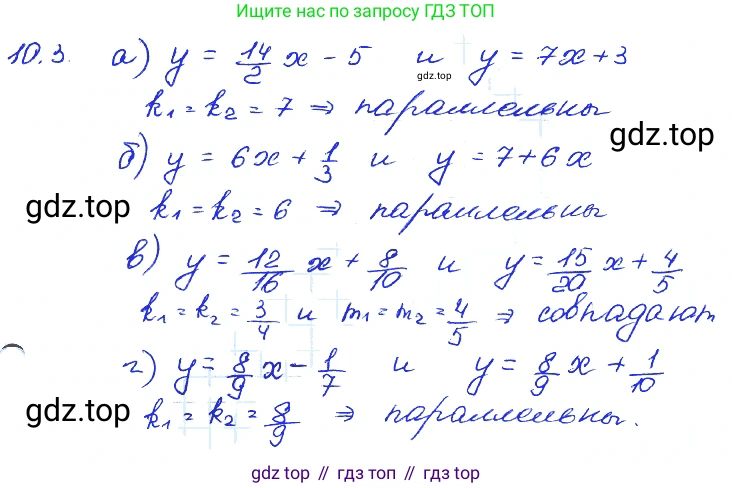 Ищите нас по запросу ГДЗ ТОП
10.3. а) y = 14/2 x - 5 и y = 7x + 3
gdz.top
k₁ = k₂ = 7 ⇒ параллельны
gdz.top
б) y = 6x + 1/3 и y = 7 + 6x
gdz.top
k₁ = k₂ = 6 ⇒ параллельны
в) y = 12/16 x + 8/10 и y = 15/20 x + 4/5
k₁ = k₂ = 3/4 и m₁ = m₂ = 4/5 ⇒ совпадают
г) y = 8/9 x - 1/7 и y = 8/9 x + 1/10
gdz.top
gdz.top
k₁ = k₂ = 8/9 ⇒ параллельны.
gdz top // гдз топ // gdz top